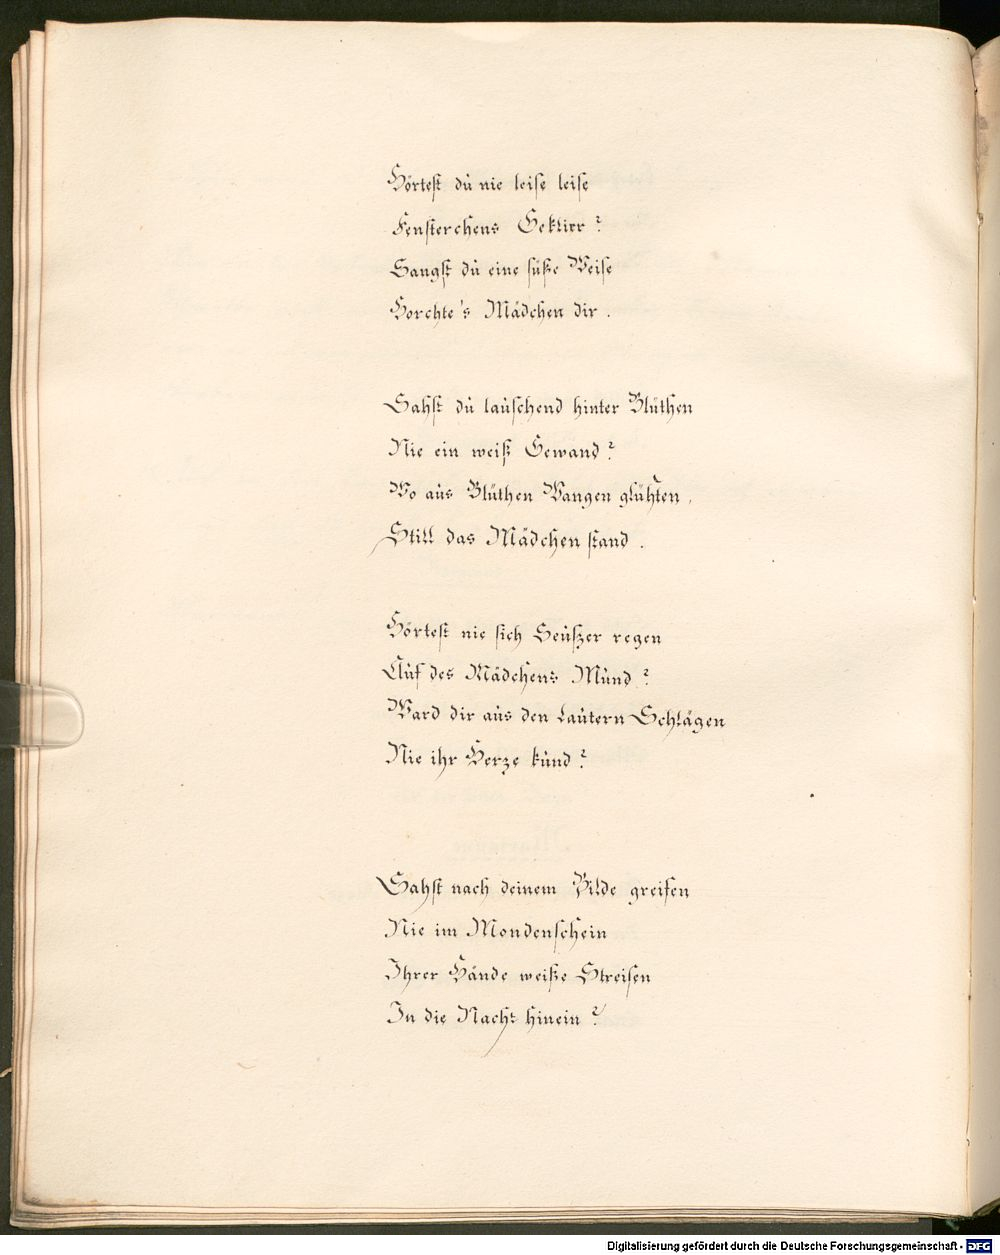 Hörtest du nie leise leise
Fensterchens Geklirr?
Sangst du eine süße Weise
Horchte's Mädchen dir.
Sahst du lauschend hinter Blüthen
Nie ein weiß Gewand?
Wo aus Blüthen Wangen glühten,
Still das Mädchen stand.
Hörtest nie sich Seufzer regen
Auf des Mädchens Mund?
Ward dir aus den lautern Schlägen
Nie ihr Herze kund?
Sahst nach deinem Bilde greifen
Nie im Mondenschein
Ihrer Hände weiße Streifen
In die Nacht hinein?
Digitalisierung gefördert durch die Deutsche Forschungsgemeinschaft - DFG